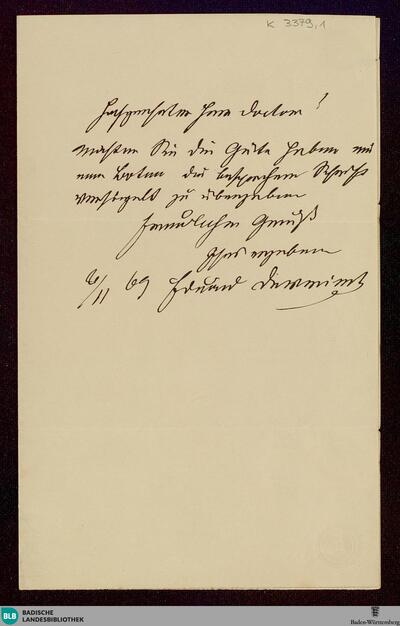 K 3379,1
Hochgeehrter Herr Doctor!
Möchten Sie die Güte haben
dem Boten die besprochene Schrift
versiegelt zu übergeben
Freundlichen Gruß
Ihr ergebener
6/11 69 Eduard Devrient
BLB
BADISCHE
LANDESBIBLIOTHEK
Baden-Württemberg